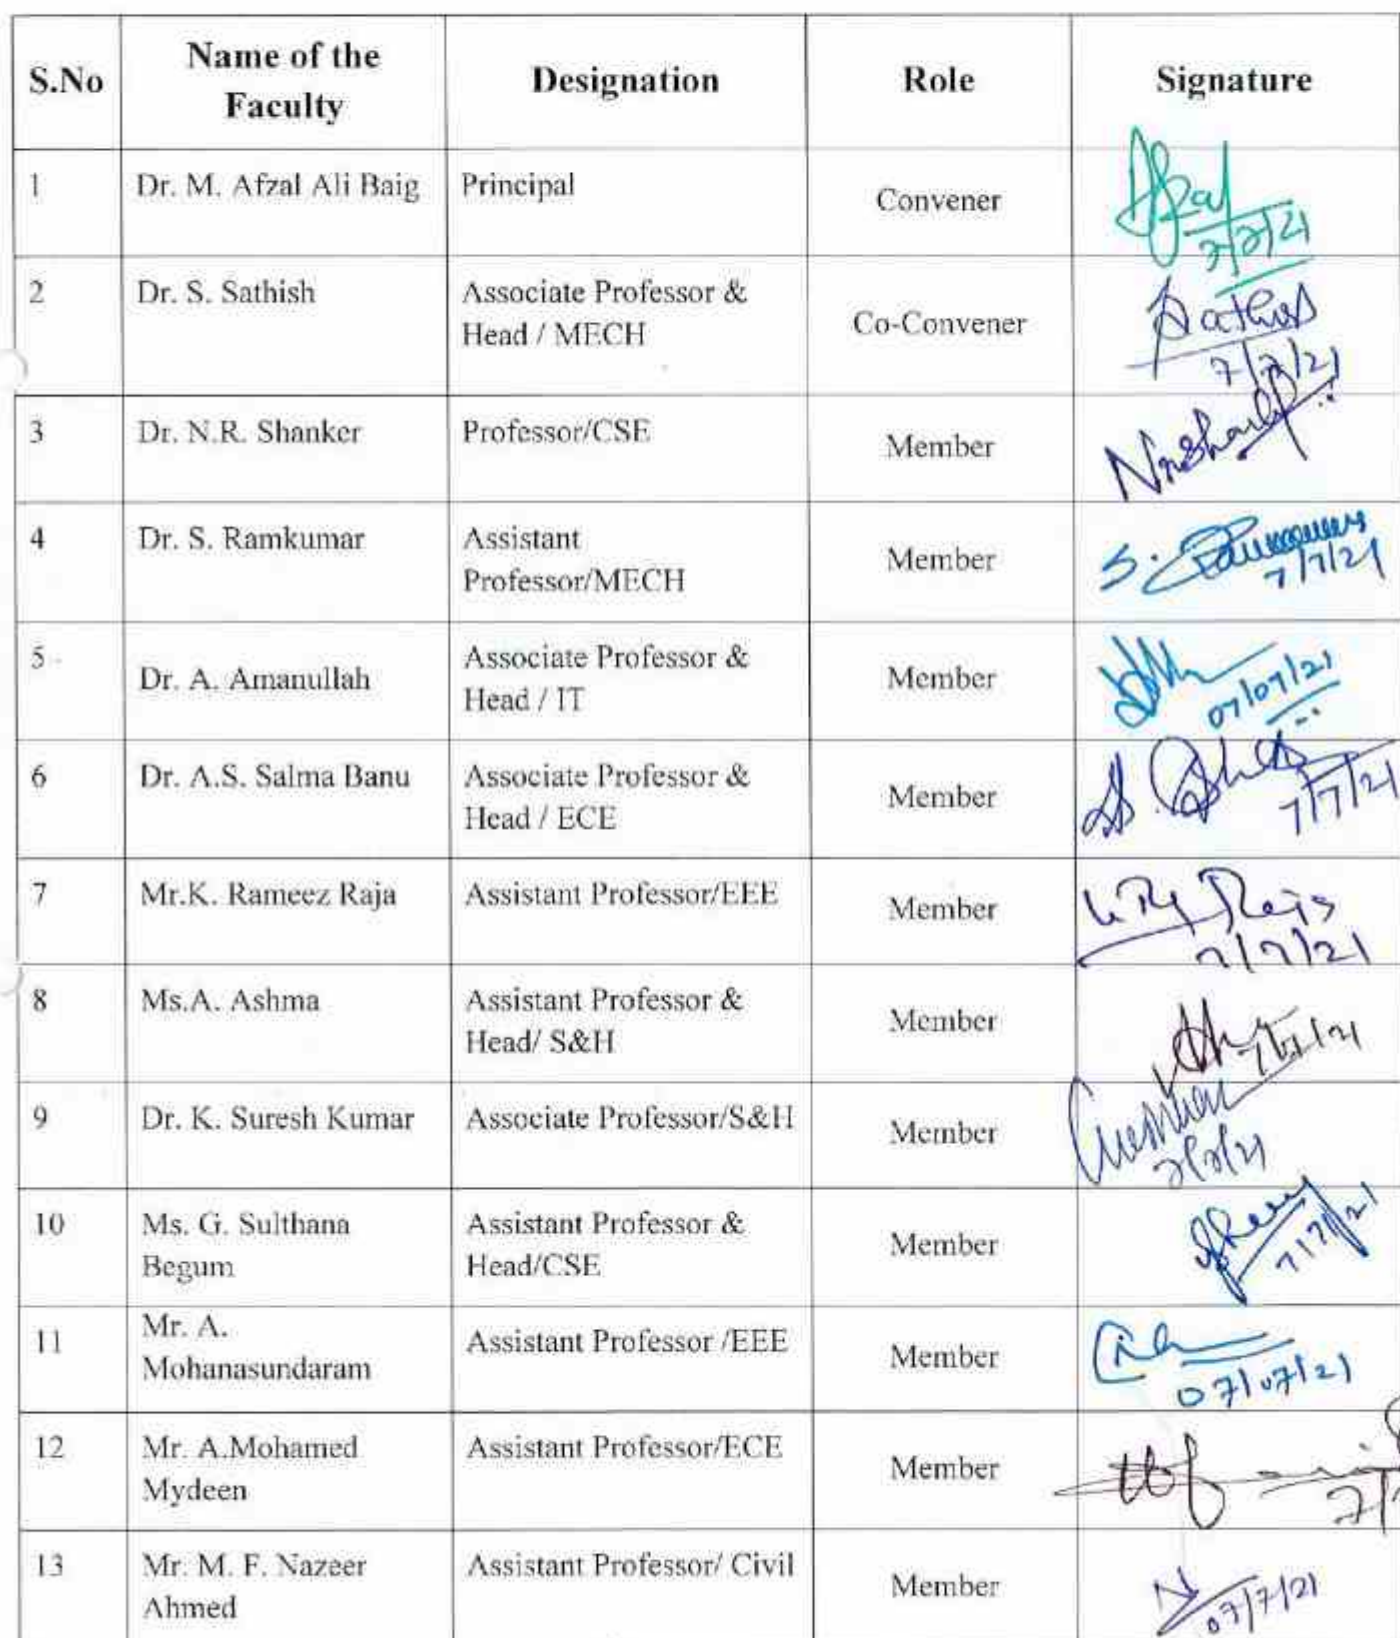 S.No Name of the Faculty Designation Role Signature
1 Dr. M. Afzal Ali Baig Principal Convener Afzal 7/7/21
2 Dr. S. Sathish Associate Professor & Head / MECH Co-Convener Sathish 7/7/21
3 Dr. N.R. Shanker Professor/CSE Member
4 Dr. S. Ramkumar Assistant Professor/MECH Member S. 7/7/21
5 Dr. A. Amanullah Associate Professor & Head / IT Member 07/07/21
6 Dr. A.S. Salma Banu Associate Professor & Head / ECE Member 7/7/21
7 Mr.K. Rameez Raja Assistant Professor/EEE Member 7/7/21
8 Ms.A. Ashma Assistant Professor & Head/ S&H Member 7/7/21
9 Dr. K. Suresh Kumar Associate Professor/S&H Member 7/7/21
10 Ms. G. Sulthana Begum Assistant Professor & Head/CSE Member 7/7/21
11 Mr. A. Mohanasundaram Assistant Professor /EEE Member 07/07/21
12 Mr. A.Mohamed Mydeen Assistant Professor/ECE Member
13 Mr. M. F. Nazeer Ahmed Assistant Professor/ Civil Member 07/7/21